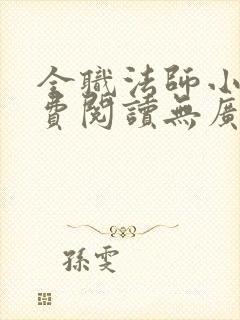 全職法師小
費閱讀無廣
孫雯